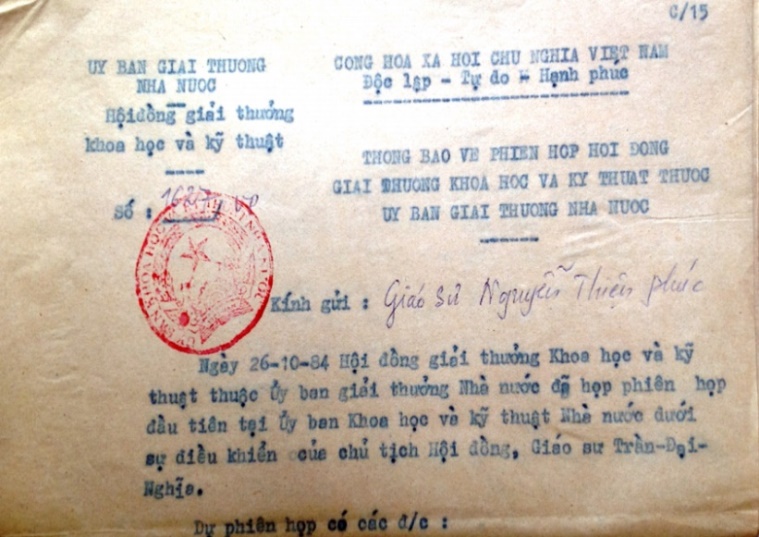 C/15
UY BAN GIAI THUONG
NHA NUOC
Hội đồng giải thưởng
khoa học và kỹ thuật
Số : 1627/ VP
CONG HOA XA HOI CHU NGHIA VIET NAM
Độc lập - Tự do - Hạnh phúc
THONG BAO VE PHIEN HOP HOI DONG
GIAI THUONG KHOA HOC VA KY THUAT THUOC
UY BAN GIAI THUONG NHA NUOC
Kính gửi : Giáo sư Nguyễn Thiện Phúc
Ngày 26-10-84 Hội đồng giải thưởng Khoa học và kỹ
thuật thuộc Ủy ban giải thưởng Nhà nước đã họp phiên họp
đầu tiên tại Ủy ban Khoa học và kỹ thuật Nhà nước dưới
sự điều khiển của chủ tịch Hội đồng, Giáo sư Trần-Đại-
Nghĩa.
Dự phiên họp có các đ/c :